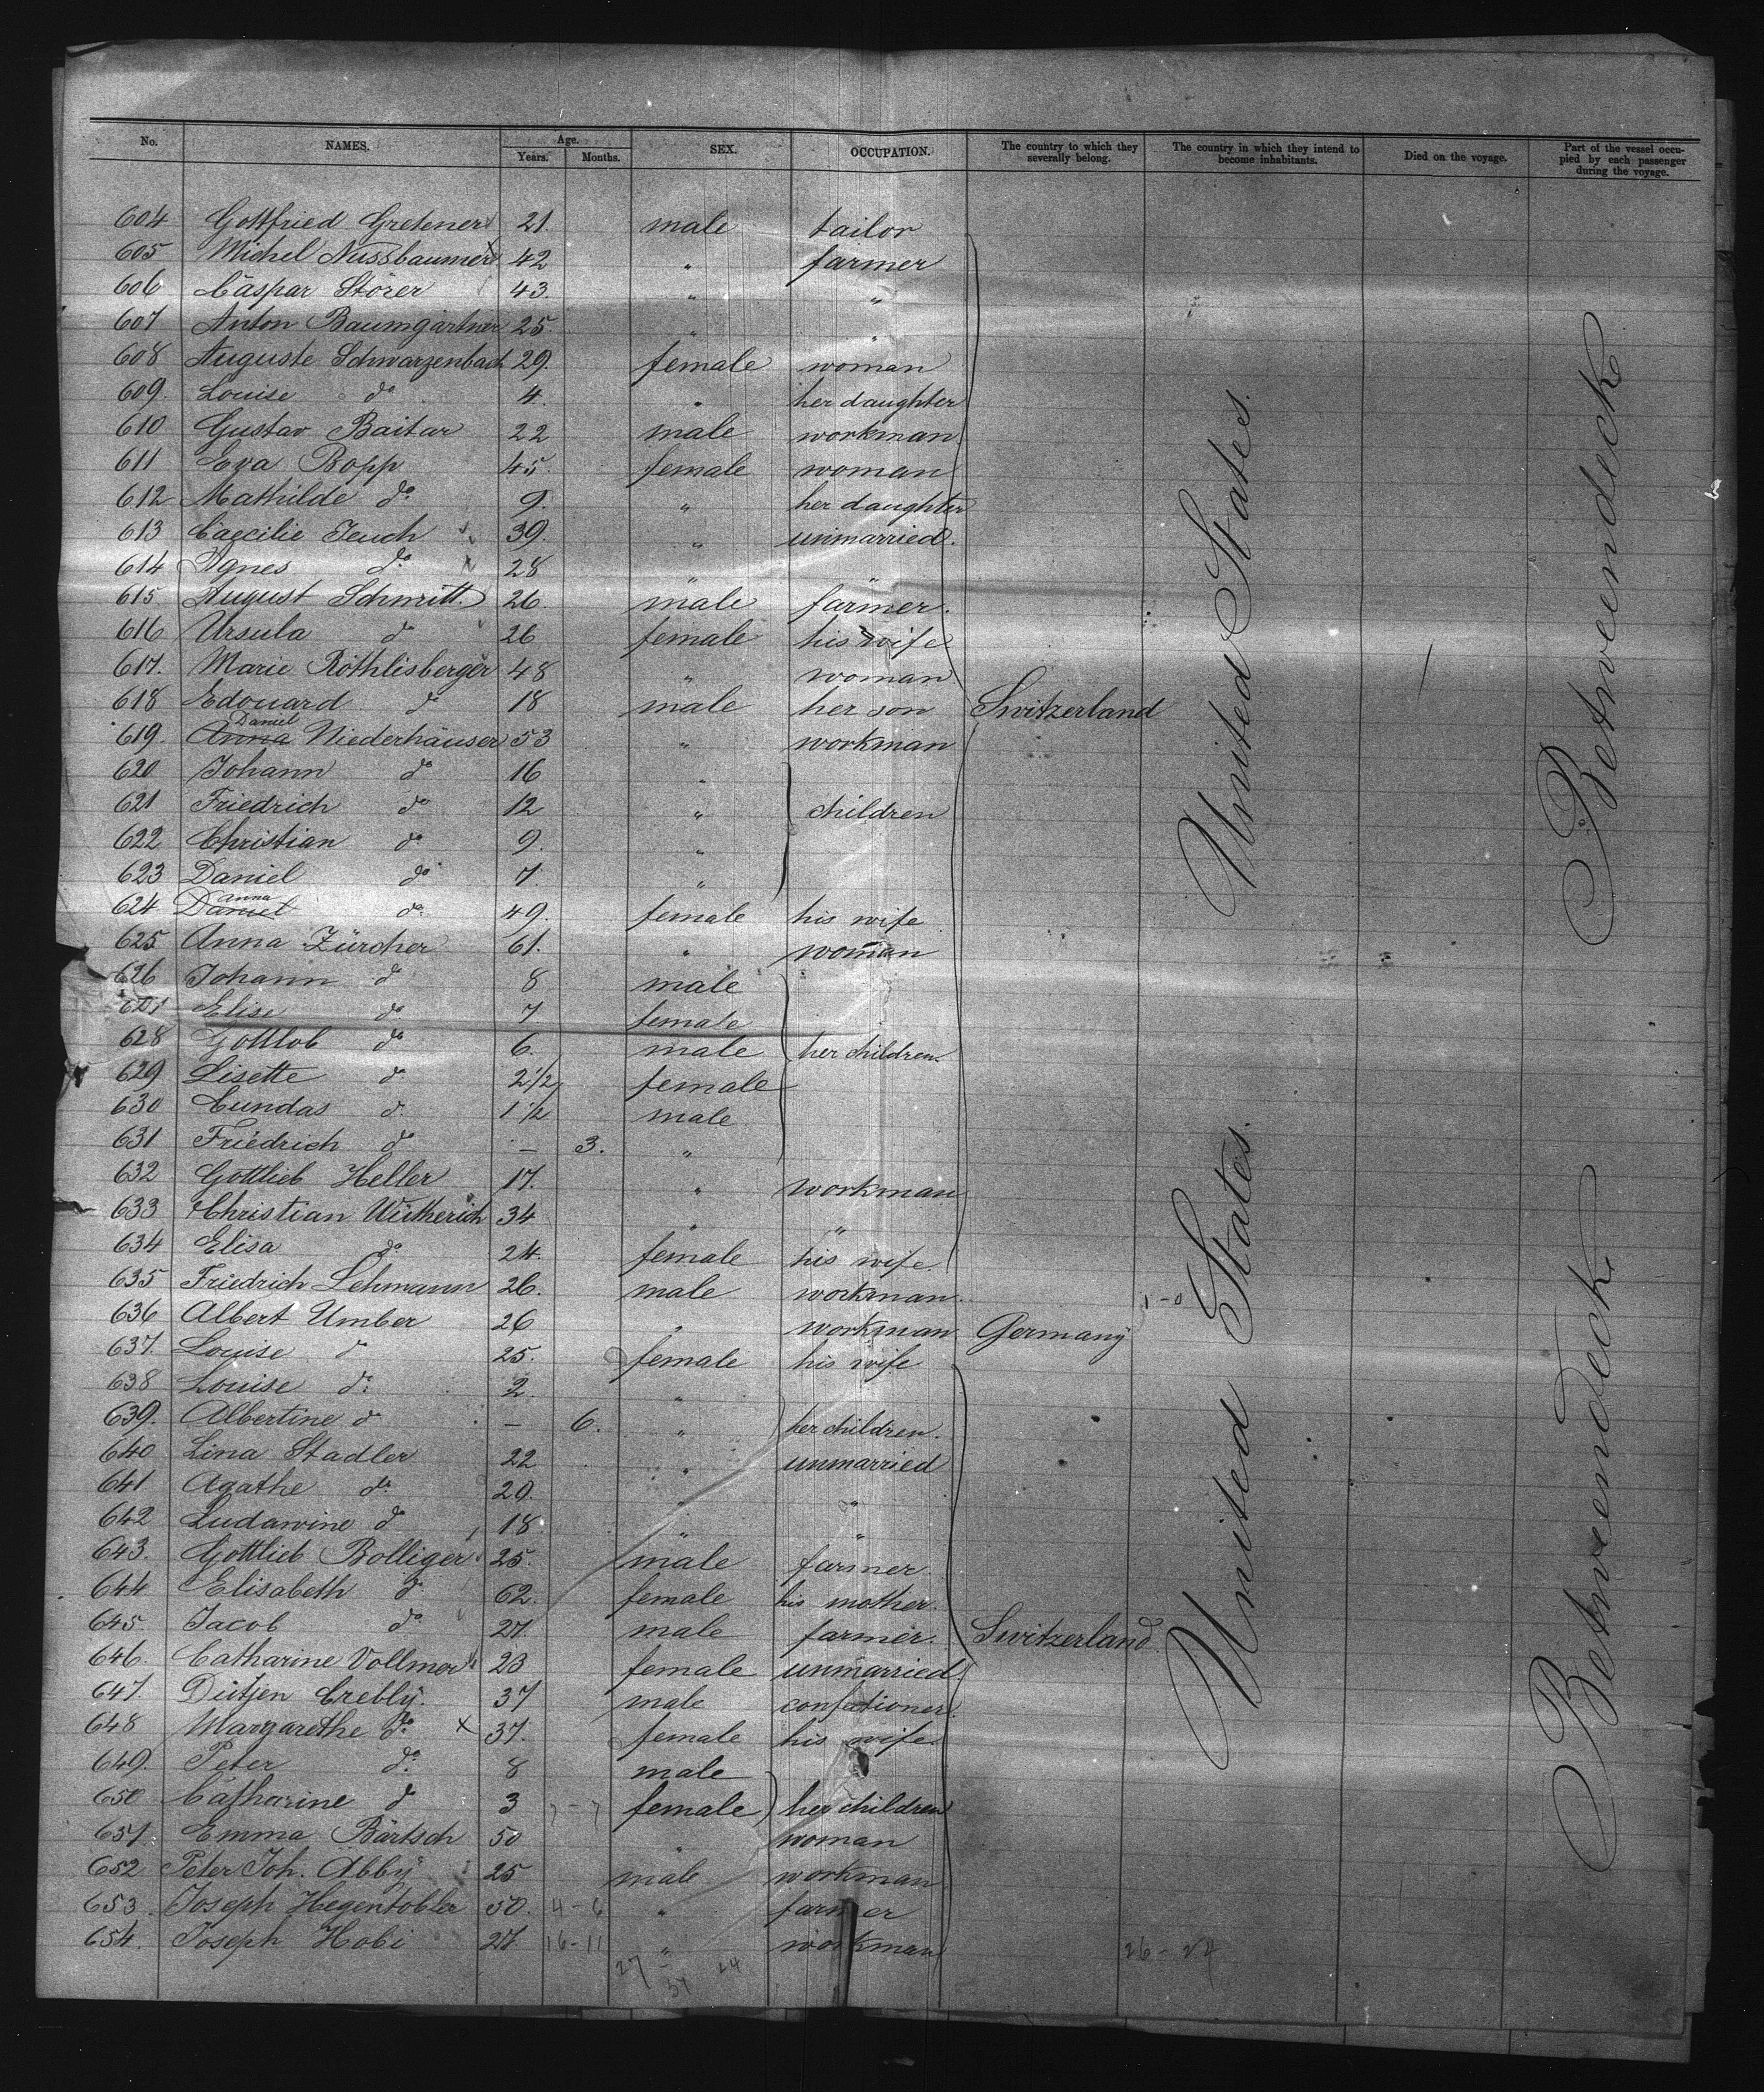 No. NAMES. Age. Years. Months. SEX. OCCUPATION. The country to which they severally belong. The country in which they intend to become inhabitants. Died on the voyage. Part of the vessel occupied by each passenger during the voyage.
604 Gottfried Gretener 21. male tailor
605 Michel Nussbaumer 42 " farmer
606 Caspar Störer 43. " "
607 Anton Baumgartner 25. " "
608 Auguste Schwarzenbach 29. female woman
609. Louise do 4. " her daughter
610 Gustav Baitar 22 male workman.
611 Eva Bopp 45. female woman
612 Mathilde do 9. " her daughter
613 Caecilie Jeuch 39. " unmarried.
614 Agnes do 28 " "
615. August Schmitt. 26. male farmer.
616 Ursula do 26 female his wife
617. Marie Röthlisberger 48 " woman
618 Edouard do 18 male her son Switzerland
619. Anna Daniel Niederhäuser 53 " workman
620 Johann do 16 "
621 Friedrich do 12 " children
622 Christian do 9. "
623 Daniel do 7. "
624 Daniel Anna do 49. female his wife
625 Anna Zürcher 61. " woman
626 Johann do 8 male
627 Elise do 7 female
628 Gottlob do 6. male her children.
629 Lisette do 2 1/2 female
630 Cundas do 1 1/2 male
631 Friedrich do — 3. "
632 Gottlieb Heller 17. " workman
633 Christian Wütherich 34 " "
634 Elisa do 24. female his wife.
635 Friedrich Lehmann 26. male workman.
636 Albert Umber 26 " workman Germany
637. Louise do 25. female his wife
638 Louise do 2 "
639. Albertine do — 6. " her children.
640 Lina Stadler 22 " unmarried
641 Agathe do 20. " "
642 Ludawine do 18 " "
643. Gottlieb Bolliger 25. male farmer.
644 Elisabeth do 62. female his mother.
645. Jacob do 27. male farmer. Switzerland
646. Catharine Vollmer 23 female unmarried.
647. Dütjen Crebly. 37 male confectioner.
648 Margarethe do x 37. female his wife.
649. Peter do 8 male
650 Catharine do 3 female her children
651. Emma Bärtsch 50 " woman
652 Peter Joh. Abby 25 male workman
653. Joseph Hegentobler 50. 4-6 " farmer
654. Joseph Hobi 27. 16-11 " workman
26-24
United States.
United States.
Betweendeck
Betweendeck